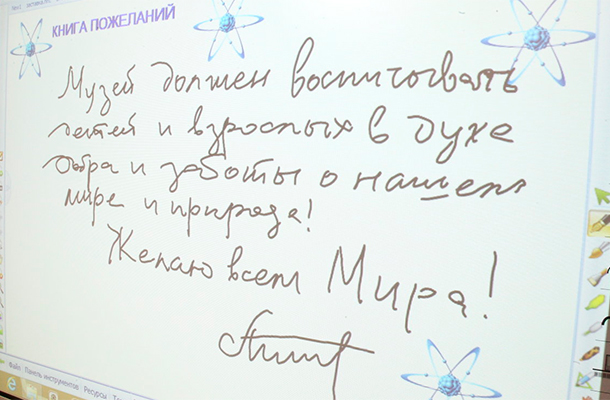 КНИГА ПОЖЕЛАНИЙ
Музей должен воспитывать
детей и взрослых в духе
добра и заботы о нашем
мире и природа!
Желаю всем Мира!
Файл Панель инструментов Ресурсы